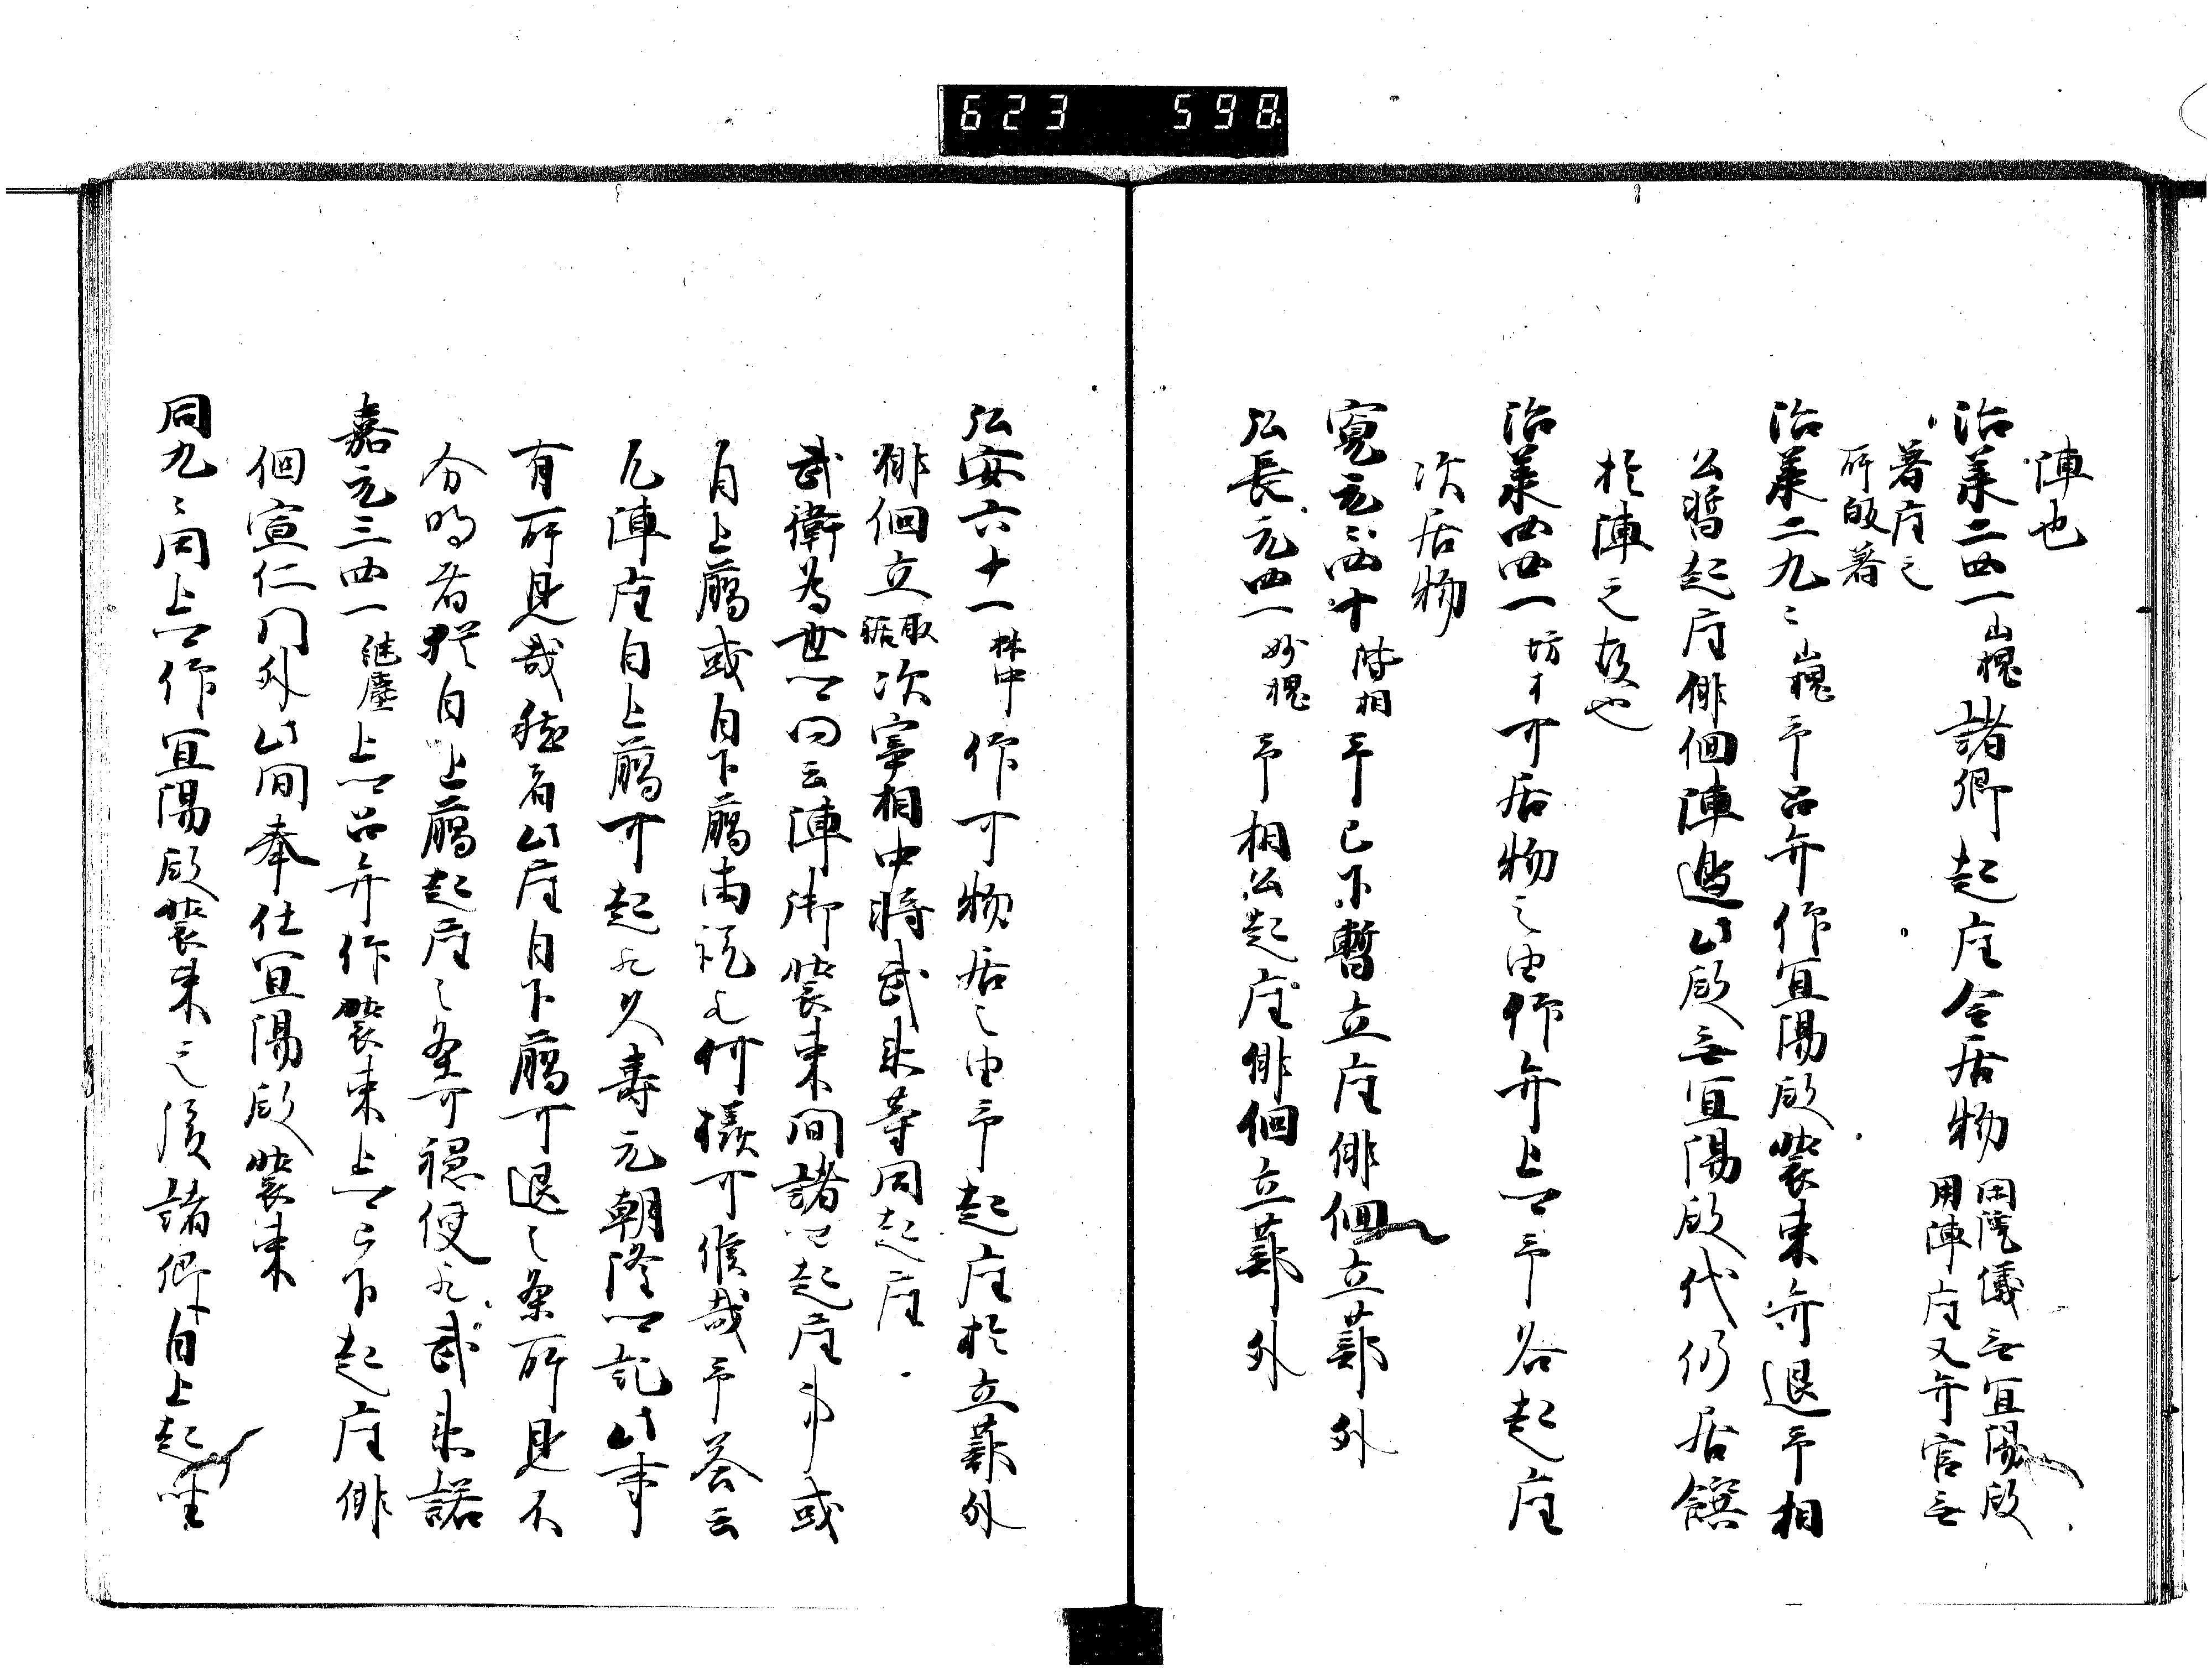 623 598
陣也
治承二四一山槐諸卿起座令居物用陣儀無宜陽殿
用陣座又弁官無
著座之
所仍著
治承二九々山槐予召弁仰宜陽殿装束弁退予相
公暫起座俳徊陣邊此殿無宜陽殿代仍居饌
於陣之故也
治承四四一坊才可居物之由仰弁上卿予各起座
次居物
寛元二四十時相予已下暫立座俳徊立蔀外
弘長元四一妙槐予相公起座俳徊立蔀外
弘安六十一林中仰可物居之由予起座於立蔀外
俳徊立取裾次宰相中将武衛等同起座
武衛為世卿問云陣御装束間諸卿起座事或
自上臈或自下臈両説也何様可候哉予答云
凡陣座自上臈可起也久寿元朝隆卿記此事
有所見哉然者此座自下臈可退之条所見不
分明者猶自上臈起座之条可穏便也武衛諾
嘉元三四一継塵上卿召弁仰装束上卿已下起座俳
徊宣仁門外此間奉仕宜陽殿装束
同九々同上卿仰宜陽殿装束之後諸卿自上起座